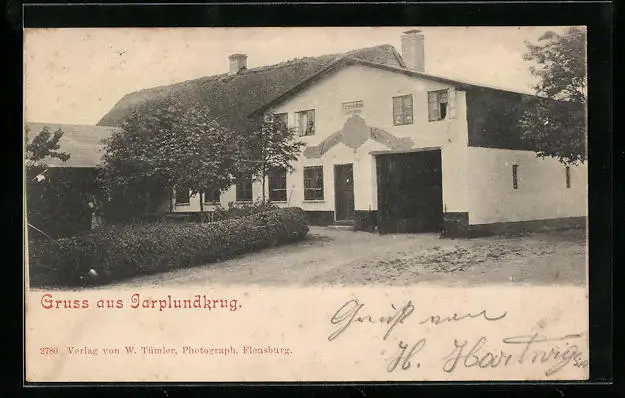 Gruss aus Jarplundkrug.
Gruß von
H. Hartwigs
2780 Verlag von W. Tümler, Photograph, Flensburg.